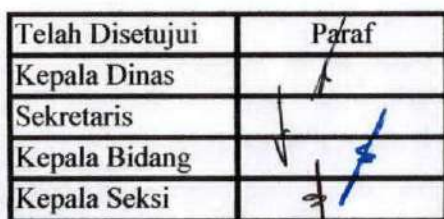 Telah Disetujui Paraf
Kepala Dinas
Sekretaris
Kepala Bidang
Kepala Seksi